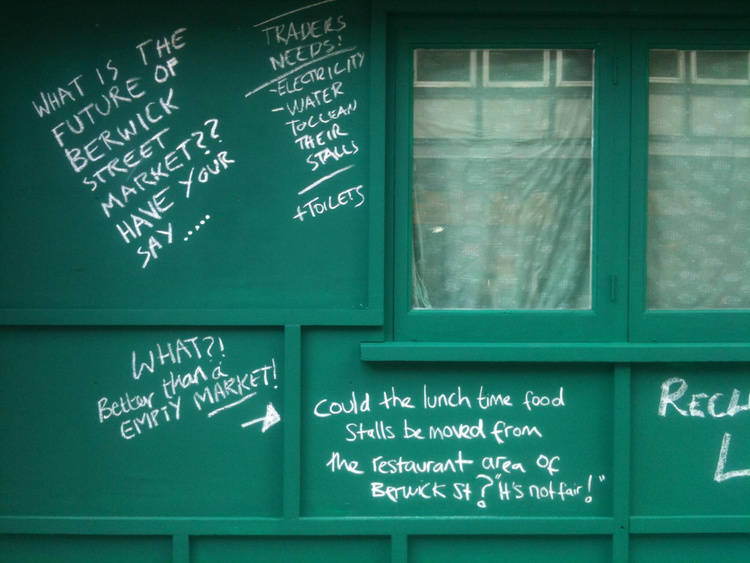 WHAT IS THE
FUTURE OF
BERWICK
STREET
MARKET??
HAVE YOUR
SAY.....
TRADERS
NEEDS:
-ELECTRICITY
-WATER
TO CLEAN
THEIR
STALLS
+TOILETS
WHAT?!
Better than a
EMPTY MARKET!
Could the lunch time food
Stalls be moved from
the restaurant area of
Berwick St? "It's not fair!"